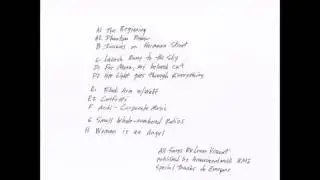 A1 The Beginning
A2 Phantom Power
B Junkies on Hermann Street
C Launch Ramp to the Sky
D1 For Mona, my beloved cat
D2 Her Light goes through Everything
E1 Black Arm w/Wolf
E2 Confetti
F Anti-Corporate Music
G Small Whole-numbered Ratios
H Woman is an Angel
All Songs By Loren
published by BMI
Special thanks to Everyone